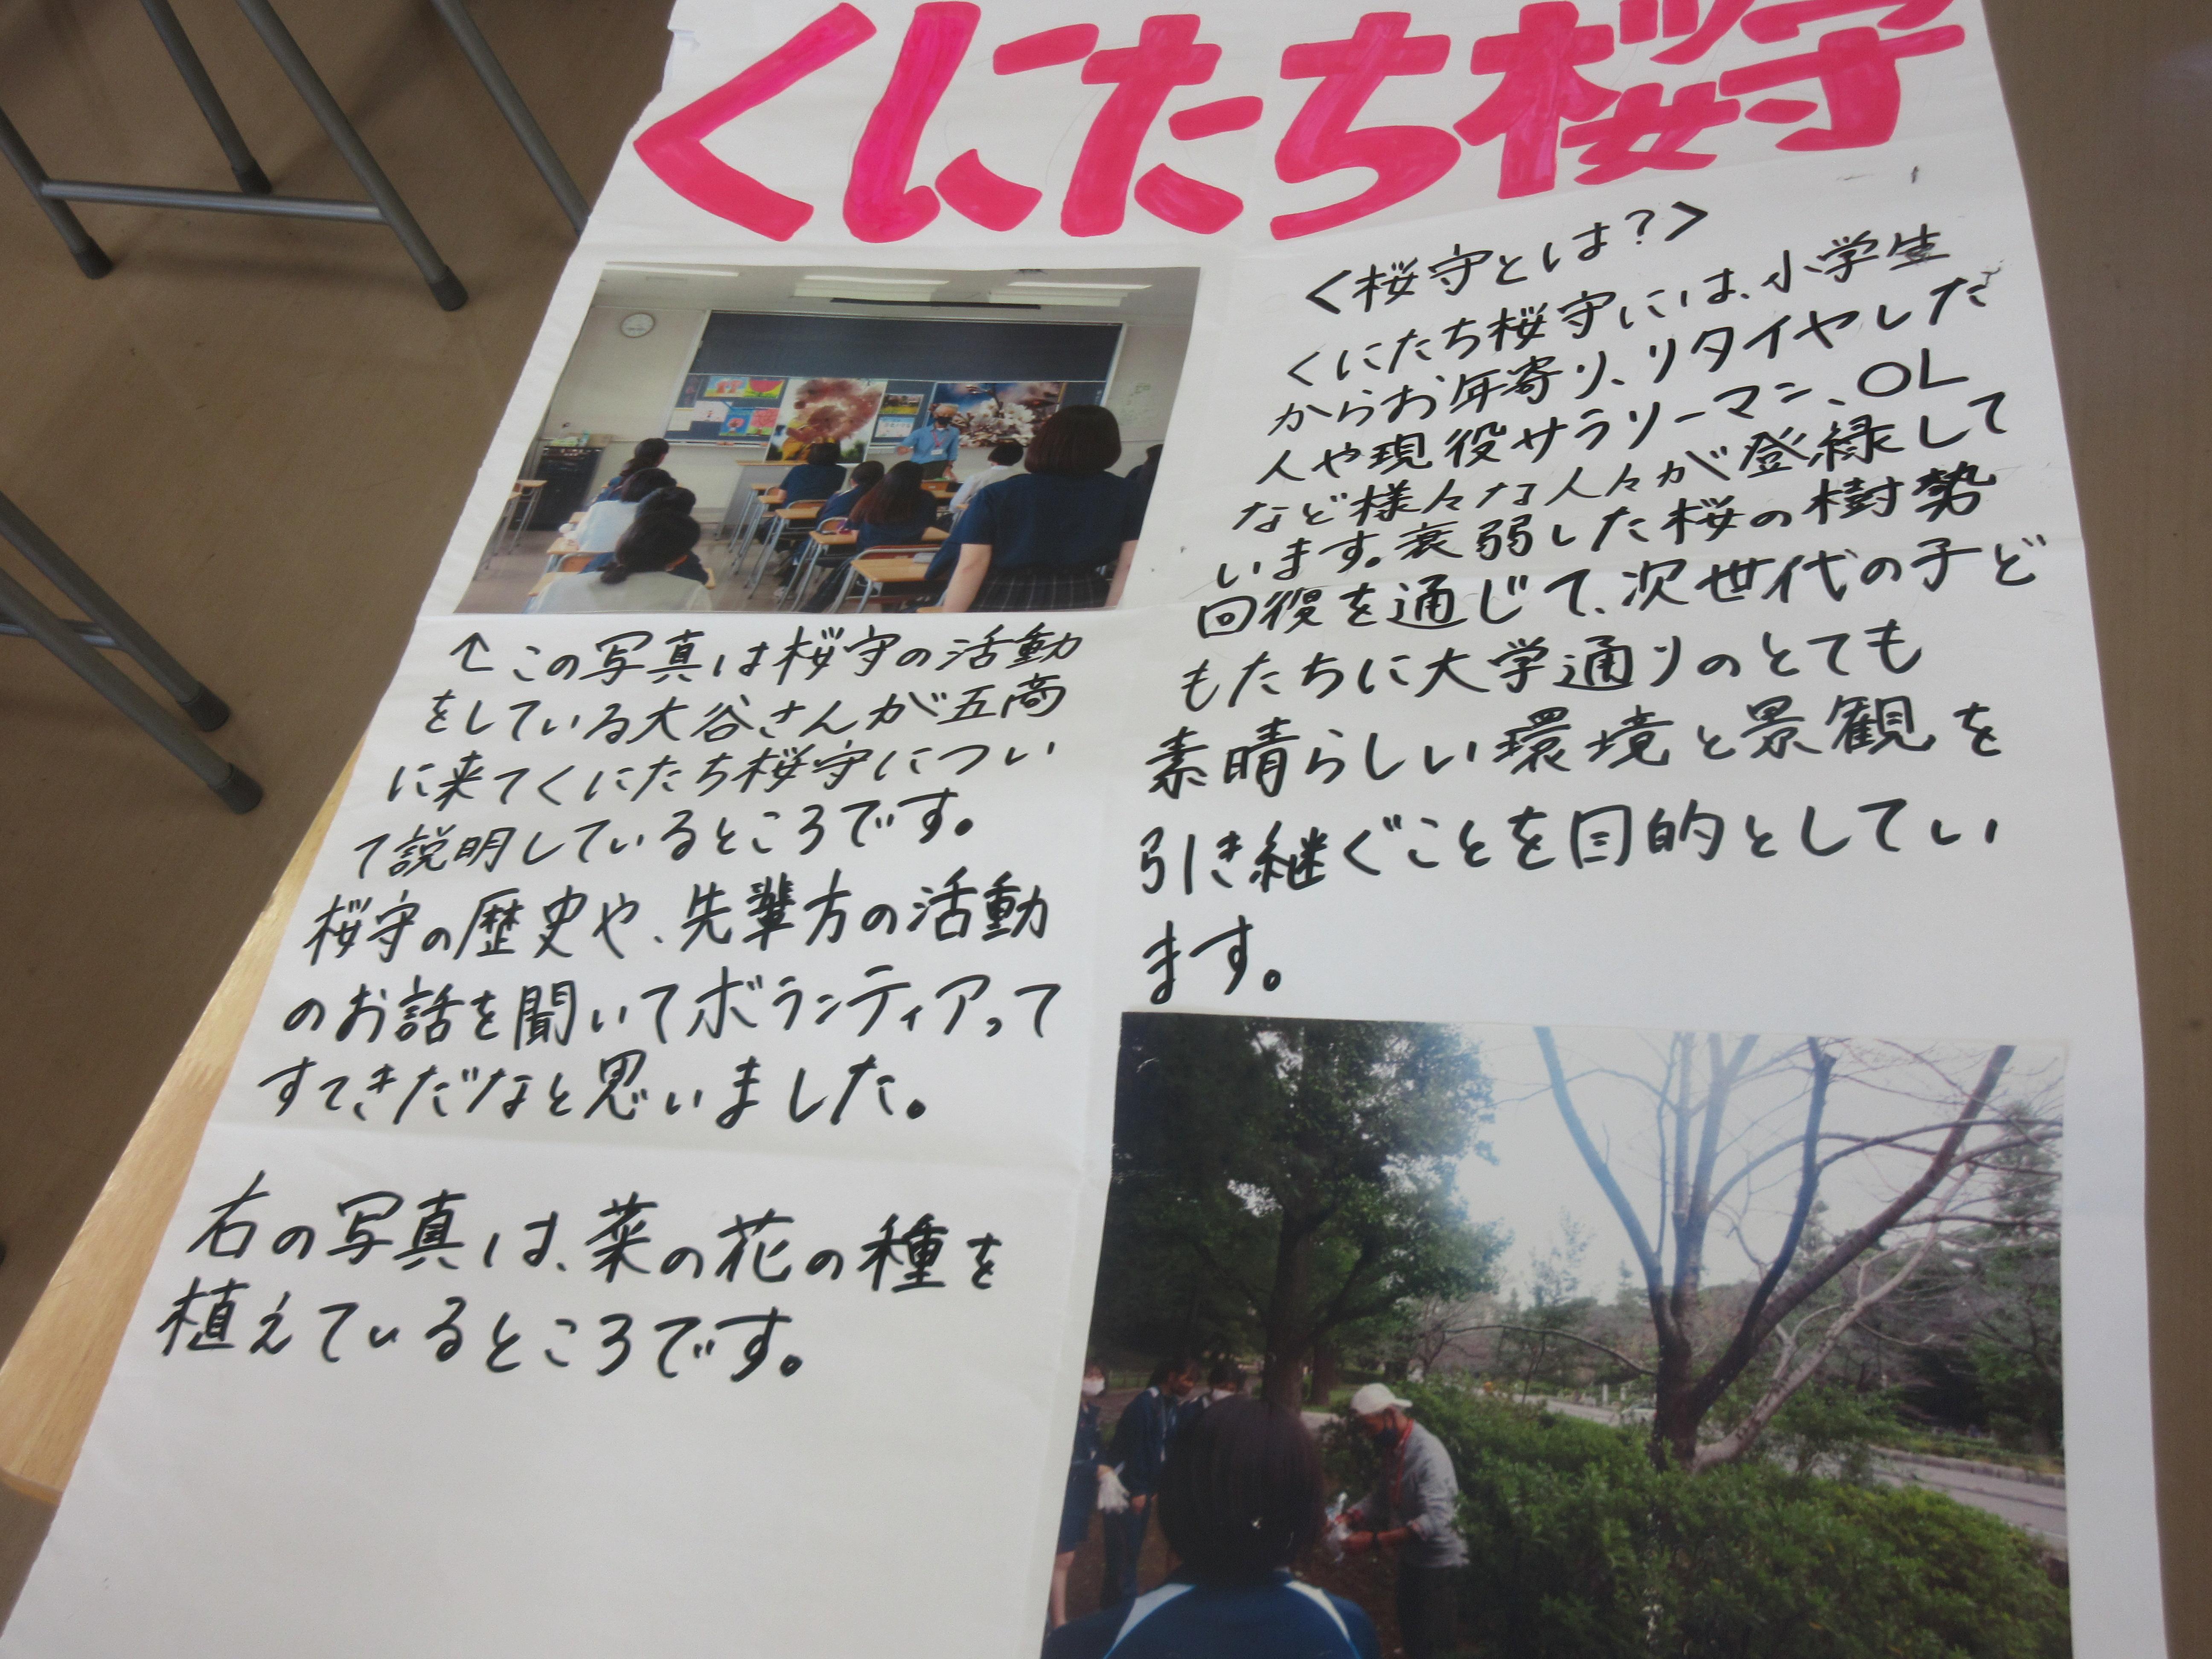 くにたち桜守
<桜守とは?>
くにたち桜守には、小学生
からお年寄り、リタイヤした
人や現役サラリーマン、OL
など様々な人々が登録して
います。衰弱した桜の樹勢
回復を通じて、次世代の子ど
もたちに大学通りのとても
素晴らしい環境と景観を
引き継ぐことを目的としてい
ます。
↑この写真は桜守の活動
をしている大谷さんが五商
に来てくにたち桜守につい
て説明しているところです。
桜守の歴史や、先輩方の活動
のお話を聞いてボランティアって
すてきだなと思いました。
右の写真は、菜の花の種を
植えているところです。